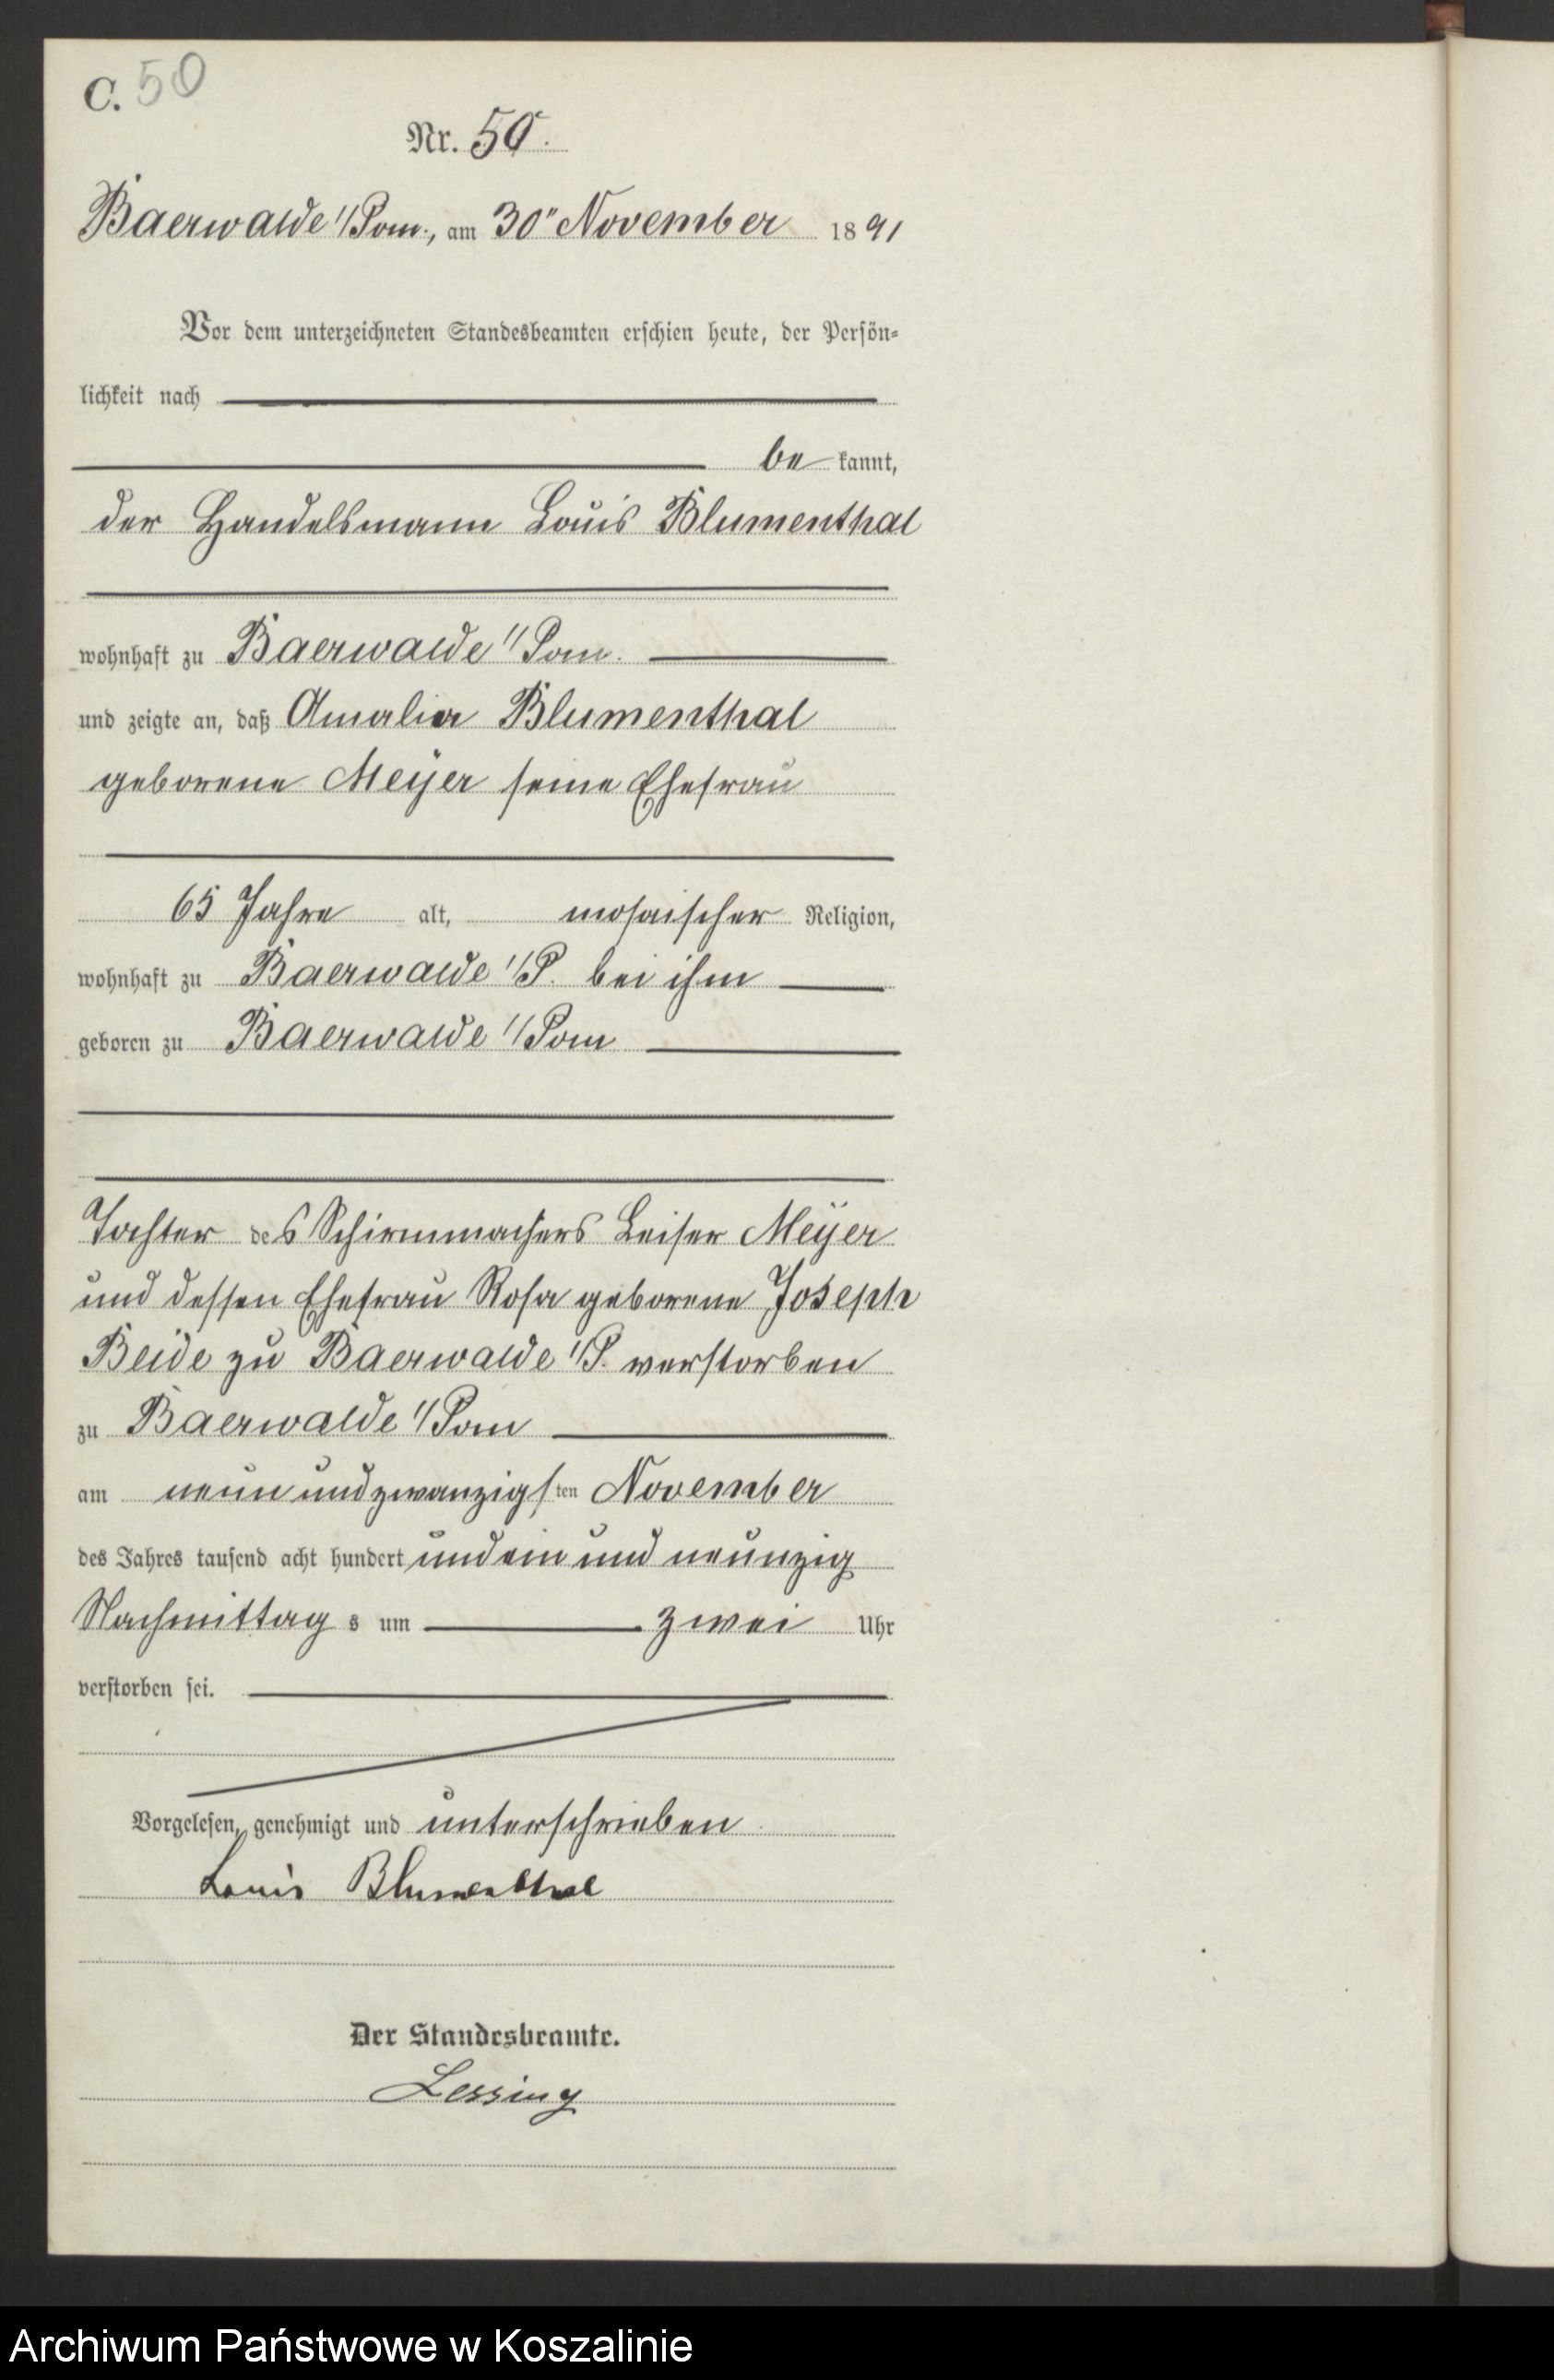 C. 50
Nr. 50.
Baerwalde i/Pom., am 30" November 1891
Vor dem unterzeichneten Standesbeamten erschien heute, der Persön-
lichkeit nach
be kannt,
der Handelsmann Louis Blumenthal
wohnhaft zu Baerwalde i/Pom.
und zeigte an, daß Amalia Blumenthal
geborene Meyer seine Ehefrau
65 Jahre alt, mosaischer Religion,
wohnhaft zu Baerwalde i/P. bei ihm
geboren zu Baerwalde i/Pom
Tochter des Schirmmachers Leiser Meyer
und dessen Ehefrau Rosa geborene Joseph
Beide zu Baerwalde i/P. verstorben
zu Baerwalde i/Pom
am neun und zwanzigsten November
des Jahres tausend acht hundert und ein und neunzig
Nachmittags um zwei Uhr
verstorben sei.
Vorgelesen, genehmigt und unterschrieben.
Louis Blumenthal
Der Standesbeamte.
Lessing
Archiwum Państwowe w Koszalinie